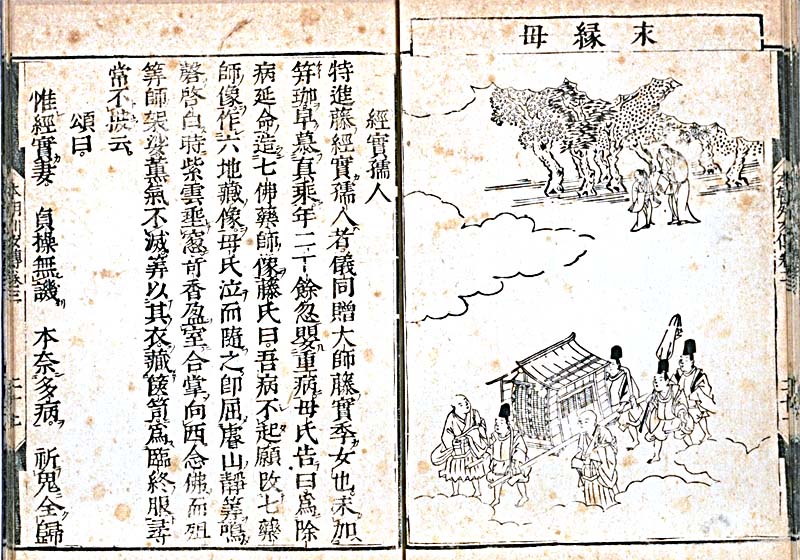 末縁母
經實孺人
特進藤經實孺人者儀同贈大師藤實季女也未加
笄珈早慕真乘年二十餘忽嬰重病母氏告曰爲除
病延命造七佛藥師像藤氏曰吾病不起願改七藥
師像作六地藏像母氏泣而隨之即屈山靜筭鳴
磬啓白時紫雲垂窓奇香盈室合掌向西念佛而殂
筭師袈裟薰氣不滅筭以其衣藏篋笥爲臨終服尋
常不披云
頌曰
惟經實妻 貞操無譏 本奈多病 祈鬼全歸